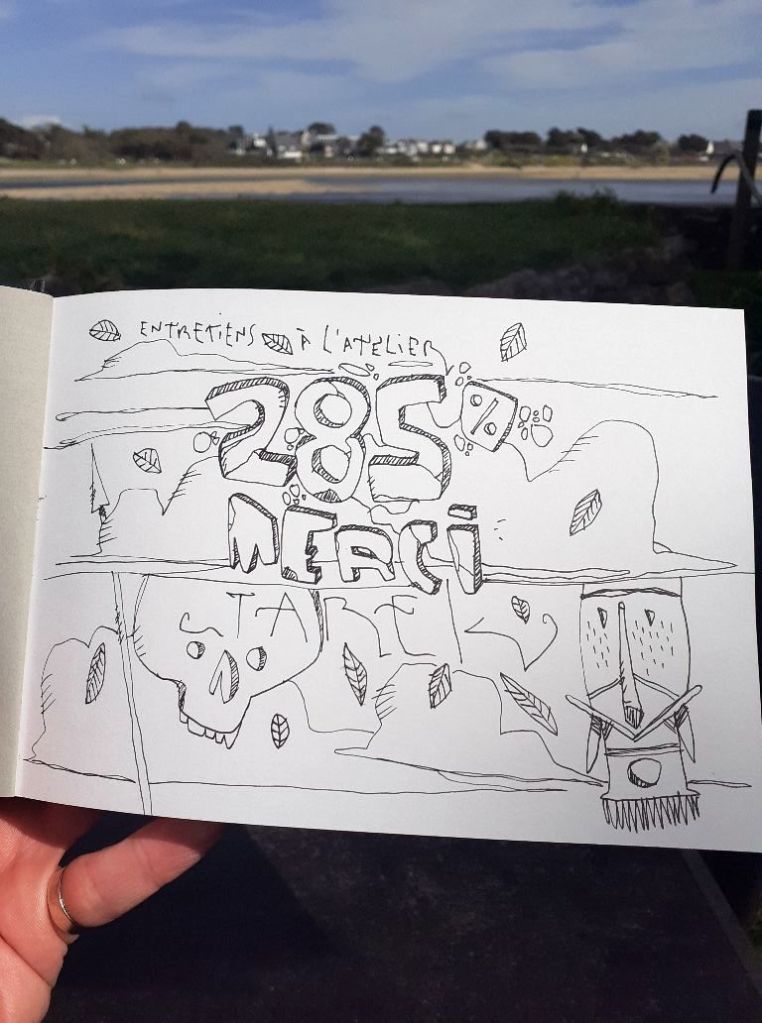 ENTRETIENS À L'ATELIER
285%
MERCI
STAREK